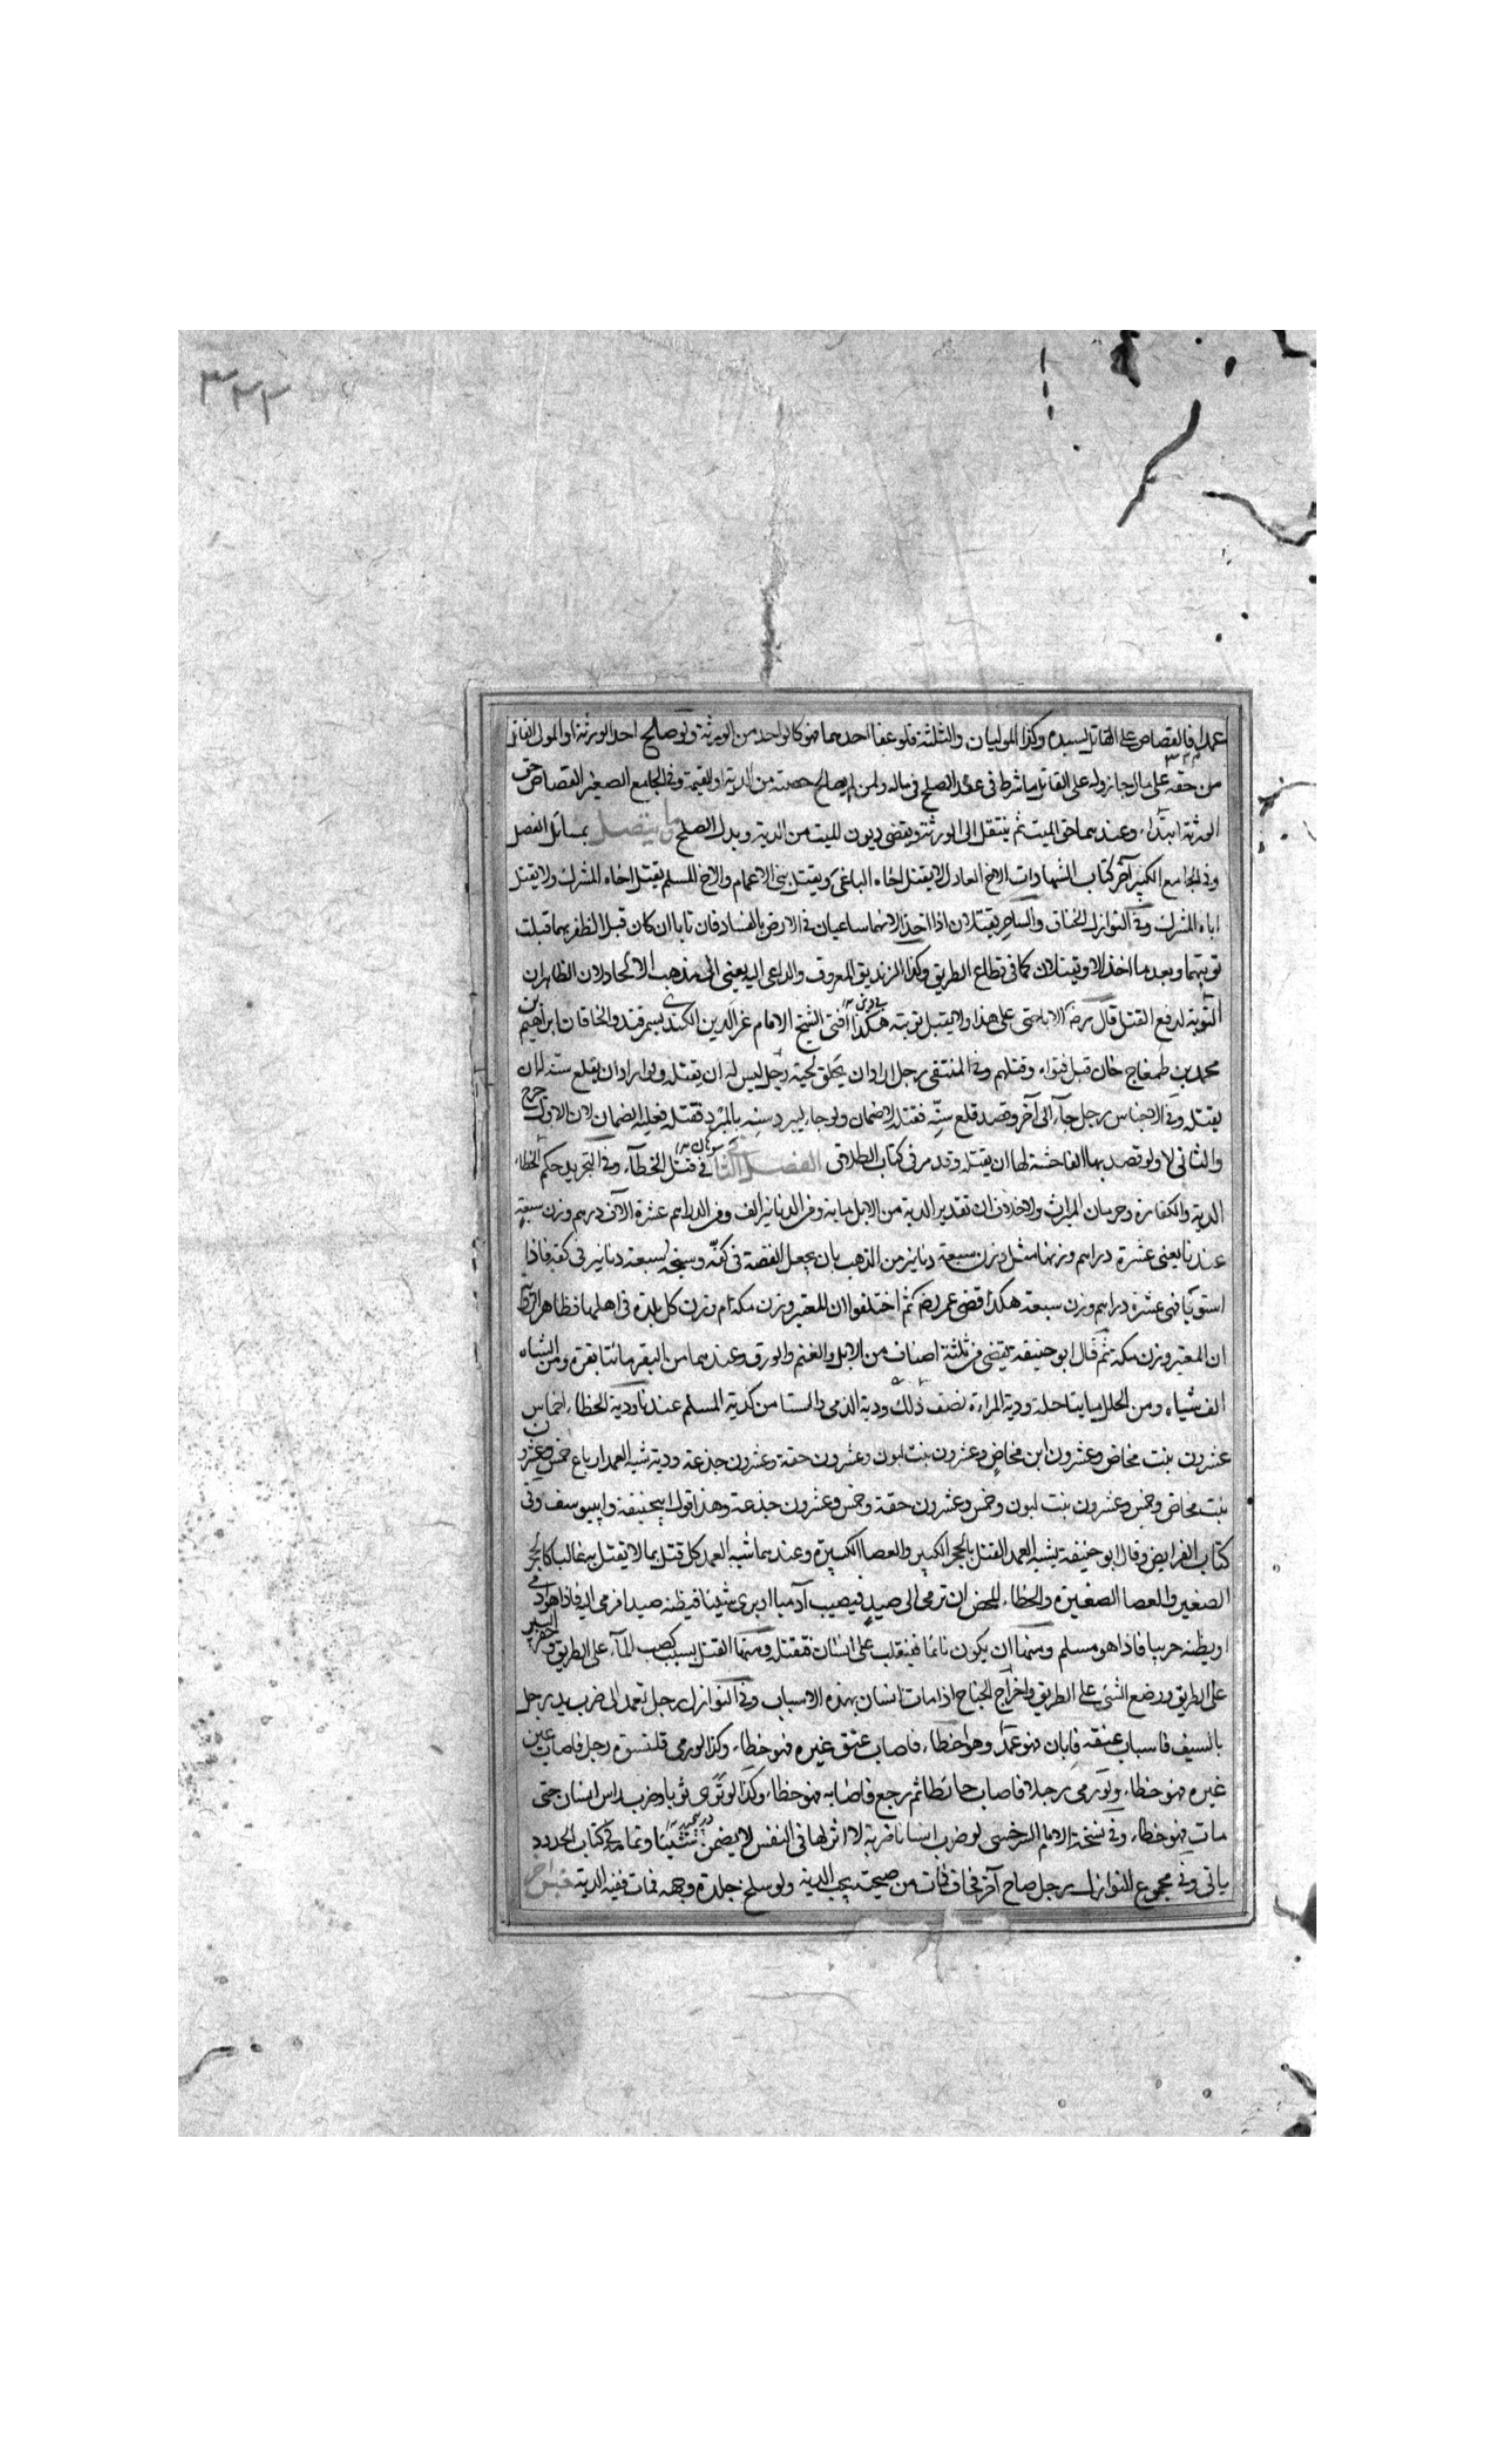 ٣٢٢
عمدا فالقصاص على القاتل لسيده وكذا الموليان والثلثة فلو عفا احدهما فهو كالواحد من الورثة ولو صالح احد الورثة او المولى القاتل
من حقه على مال جاز وله على القاتل ما شرط فى عقد الصلح فى ماله ولمن لم يصالح حصته من الدية او القيمة وفى الجامع الصغير القصاص حق
الورثة ابتداء وعندهما حق الميت ثم ينتقل الى الورثة ويقضى ديون للميت من الدية وبدل الصلح وما يتصل بمسائل الفصل
وفى الجامع الكبير آخر كتاب الشهادات الاخ العادل لا يقتل اخاه الباغى ويقتل بنى الاعمام والاخ المسلم يقتل اخاه المشرك ولا يقتل
اباه المشرك وفى النوازل الخناق والساحر يقتلان اذا اخذا لانهما ساعيان فى الارض بالفساد فان تابا ان كان قبل الظفر بهما قبلت
توبتهما وبعد ما اخذا لا ويقتلان كما فى قطاع الطريق وكذا الزنديق المعروف والداعى اليه يعنى الى مذهب الالحاد لان الظاهر ان
التوبة لدفع القتل قال رضه الاباحتى على هذا ولا يقبل توبته هكذا افتى الشيخ الامام عز الدين الكندى بسمرقند والخاقان ابراهيم بن
محمد بن طمغاج خان قبل فتواه وقتلهم وفى المنتقى رجل اراد ان يحلق لحية رجل ليس له ان يقتله ولو اراد ان يقلع سنه له ان
يقتله وفى الاجناس رجل جآء الى آخر وقصد قلع سنه فقتله لا ضمان ولو جاء ليبرد سنه بالمبرد فقتله فعليه الضمان لان الاول جرح
والثانى لا ولو قصد بها الفاحشة لها ان يقتله وقد مر فى كتاب الطلاق الفصل الثانى فى قتل الخطآء وفى التجريد حكم الخطاء
الدية والكفارة وحرمان الميراث ولا خلاف ان تقدير الدية من الابل ماية ومن الدنانير الف ومن الدراهم عشرة آلاف درهم وزن سبعة
عندنا يعنى عشرة دراهم وزنها مثل وزن سبعة دنانير من الذهب بان يجعل الفضة فى كفة وسنجة لسبعة دنانير فى كفة فاذا
استويا فهى عشرة دراهم وزن سبعة هكذا قضى عمر رضه ثم اختلفوا ان المعتبر وزن مكة ام وزن كل بلدة فى اهلها فظاهر الرواية
ان المعتبر وزن مكة ثم قال ابو حنيفة يقضى من ثلثة اصناف من الابل والغنم والورق وعندهما من البقر مائتا بقرة ومن الشاه
الف شياه ومن الحلل مايتا حلة ودية المراءة نصف ذلك ودية الذمى والمستامن كدية المسلم عندنا ودية الخطاء اخماس
عشرون بنت مخاض وعشرون ابن مخاض وعشرون بنت لبون وعشرون حقة وعشرون جذعة ودية شبه العمد ارباع خمس وعشرون
بنت مخاض وخمس وعشرون بنت لبون وخمس وعشرون حقة وخمس وعشرون جذعة وهذا قول ابيحنيفة وابييوسف وفى
كتاب الفرايض وقال ابو حنيفة يشبه العمد القتل بالحجر الكبير والعصا الكبيرة وعندهما شبه العمد كل قتل بما لا يقتل به غالبا كالحجر
الصغير والعصا الصغيرة والخطاء المحض ان ترمى الى صيد فيصيب آدميا او يرى شيئا فيظنه صيدا فرمى اليه فاذا هو ادمى
او يظنه حربيا فاذا هو مسلم ومنها ان يكون نائما فينقلب على انسان فقتله ومنها القتل بسبب كصب المآء على الطريق وحفر البير
على الطريق ووضع الشئ على الطريق واخراج الجناح اذا مات انسان بهذه الاسباب وفى النوازل رجل تعمد الى ضرب يد رجل
بالسيف فاصاب عنقه فابان فهو عمد وهو اخطاء فاصاب عنق غيره فهو خطاء وكذا لو رمى قلنسوة رجل فاصاب عين
غيره فهو خطاء ولو رمى رجلا فاصاب حائطا ثم رجع فاصابه فهو خطاء وكذا لوى ثوبا وضرب راس انسان حتى
مات فهو خطاء وفى نسخة الامام السرخسى لو ضرب انسانا ضربة لا اثر لها فى النفس لا يضمن شيئا وتمامه فى كتاب الحدود
ياتى وفى مجموع النوازل رجل صاح آخر فخاف فمات من صيحته يجب الدية ولو سلخ جلدة وجهه فمات ففيه الدية